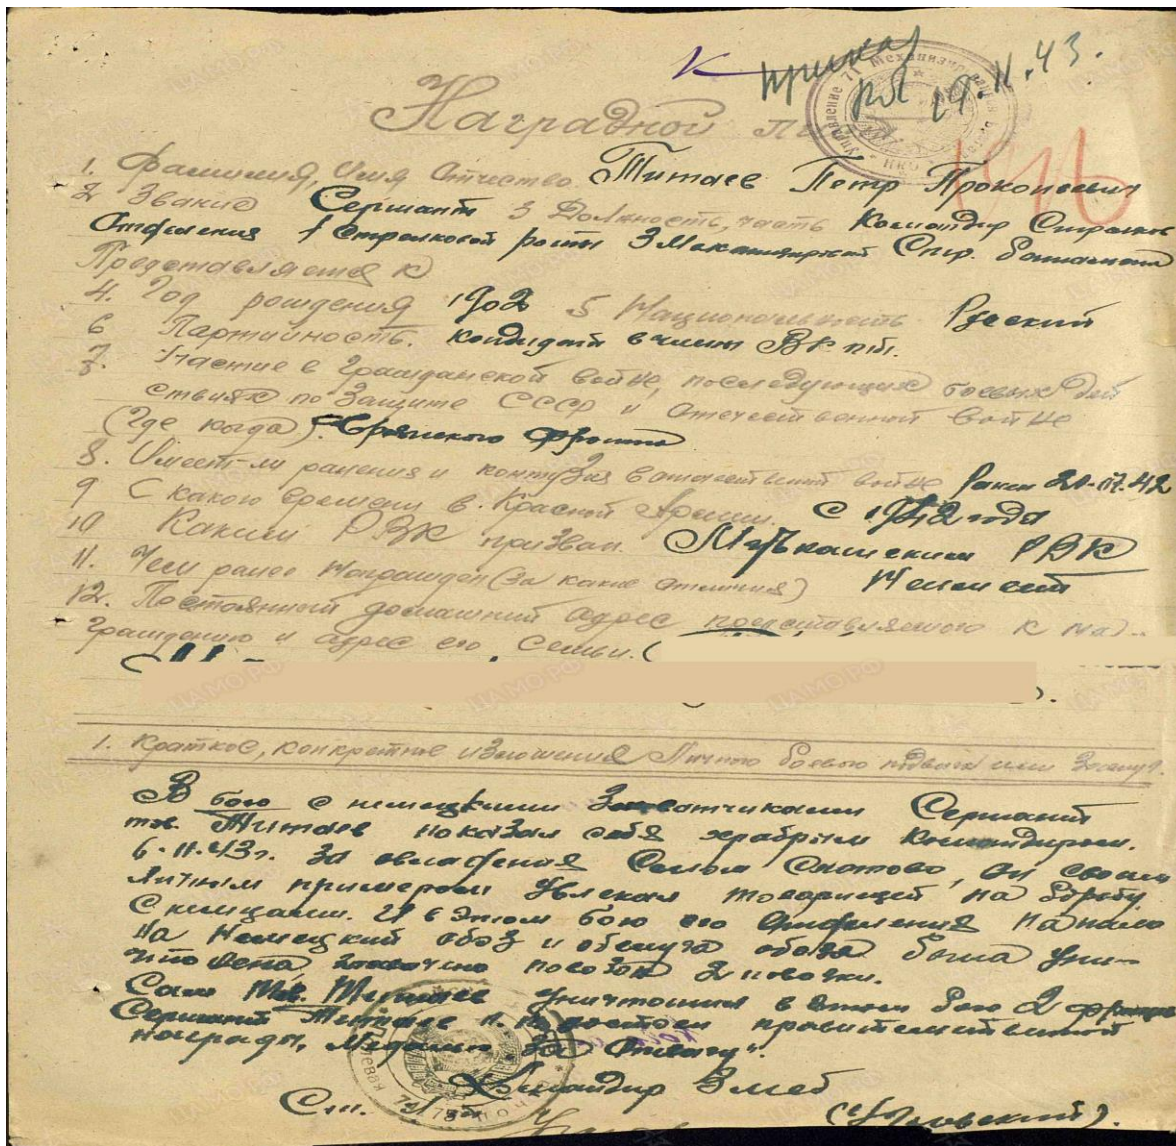 К приказ
19.11.43.
Наградной лист
1. Фамилия, Имя Отчество. Титаев Петр Прокопеевич
2 Звание Сержант 3 Должность, часть Командир Стрелков
Отделения 1 Стрелковой роты 3 Механизированный Стр. Баталиона
Представляется к
4. Год рождения 1902 5 Национальность Русский
6 Партийность. кандидат в члены ВКПб.
7. Участие в Гражданской войне, последующих боевых дей
ствиях по Защите СССР и Отечественной войне
(где когда). Брянского Фронта
8. Имеет-ли ранения и контузия в отечественной войне Ранен 42
9 С какого времени в Красной Армии. С 1942 года
10 Каким РВК призван. РВК
11. Чем ранее Награжден (за какие отличия) Не имеет
12. Постоянный домашний адрес представляемого к На-
граждению и адрес его Семьи. (
1. Краткое, конкретное изложения Личного боевого подвига или Заслуг.
В бою с немецкими Захватчиками Сержант
тов. Титаев показал себя храбрым Командиром.
6.11.43г. За овладения Селом, он своим
личным примером увлекал товарищей на борьбу
С немцами. И в этом бою его отделения напало
на Немецкий обоз и обслуга обоза была уни-
чтожена, захвачено 2 повозки.
Сам тов. Титаев уничтожил в этом бою 2 фрица
Сержант Титаев П. П. достоин правительственной
награды, Медали "За Отвагу".
Командир 3 мсб
Ст.